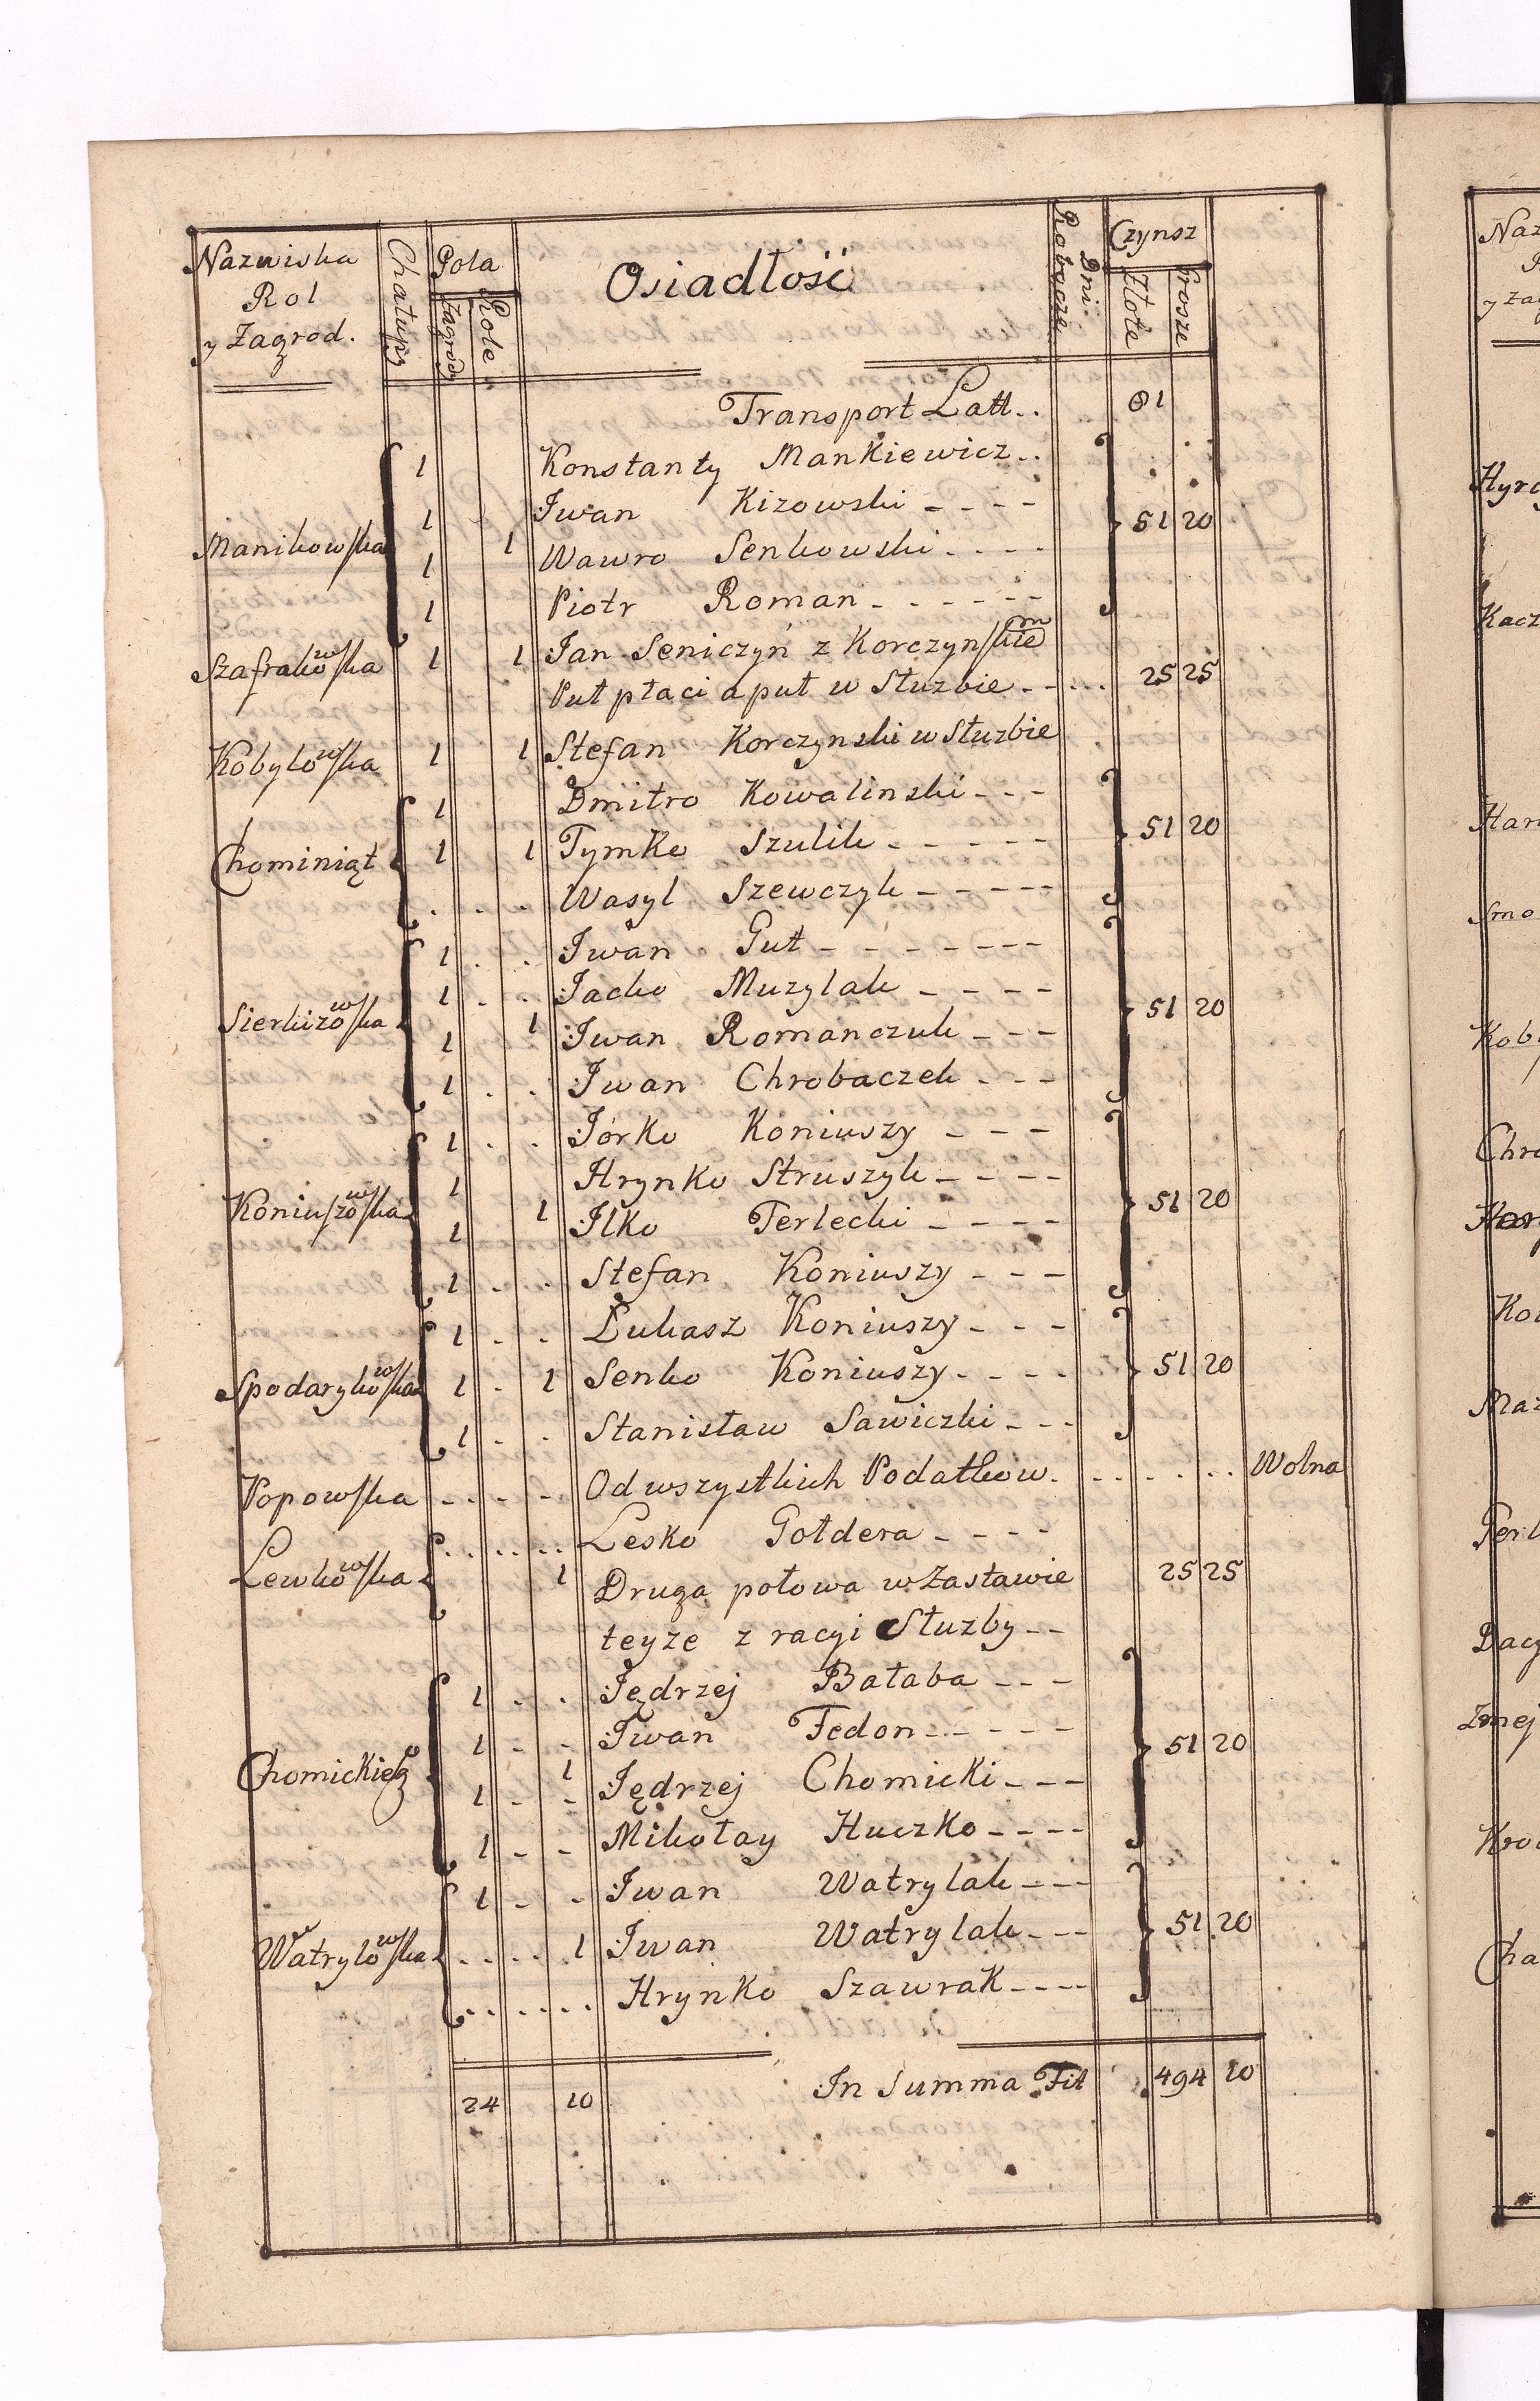 Nazwiska Rol y Zagrod. | Chałupy | Pola | Zagrody | Role | Osiadłość | Dni Robocze | Czynsz | Złote | Grosze
Transport Latt.. 81
Manikowska 1 Konstanty Mankiewicz..
1 Iwan Kizowski - - - -
1 1 Wawro Senkowski - - - - 51 20
1 Piotr Roman - - - - - -
Szafrakowska 1 1 Jan Seniczyn z Korczynskiem
Puł płaci a puł w Służbie - - ... 25 25
Kobylowska 1 1 Stefan Korczynski w Służbie
Chominiąt 1 Dmitro Kowalinski - - -
1 1 Tymko Szulik - - - - - 51 20
. . . Wasyl Szewczyk - - - - -
Sierkizowska 1 . . Iwan Gut - - - - - - -
1 . . Jacko Muzylak - - - -
1 1 Iwan Romanczuk - - - 51 20
1 . . Iwan Chrobaczek - - -
Koniuszowska 1 . . Jorko Koniuszy - - -
1 Hrynko Struszyk - - - -
1 1 Ilko Terlecki - - - - 51 20
1 . . Stefan Koniuszy - - -
Spodarykowska 1 - - Łukasz Koniuszy - - -
1 - 1 Senko Koniuszy - - - - 51 20
1 - - Stanisław Sawiczki - - -
Popowska - - - - - Od wszystkich Podatkow. . . . . . . Wolna
Lewkowska . . . . . . Lesko Gołdera - - - -
1 Druga połowa w Zastawie 25 25
teyze z racyi Służby - -
Chomickiego 1 - - Jędrzej Bałaba - - -
1 - - Iwan Fedon - - - - -
1 - 1 Jędrzej Chomicki - - - 51 20
1 - - Mikołay Huczko - - - -
Watrylowska 1 - - Iwan Watrylak - - -
. . . . 1 Iwan Watrylak - - - 51 20
. . . . . . Hrynko Szawrak - - - -
24 10 In Summa Fit 494 10